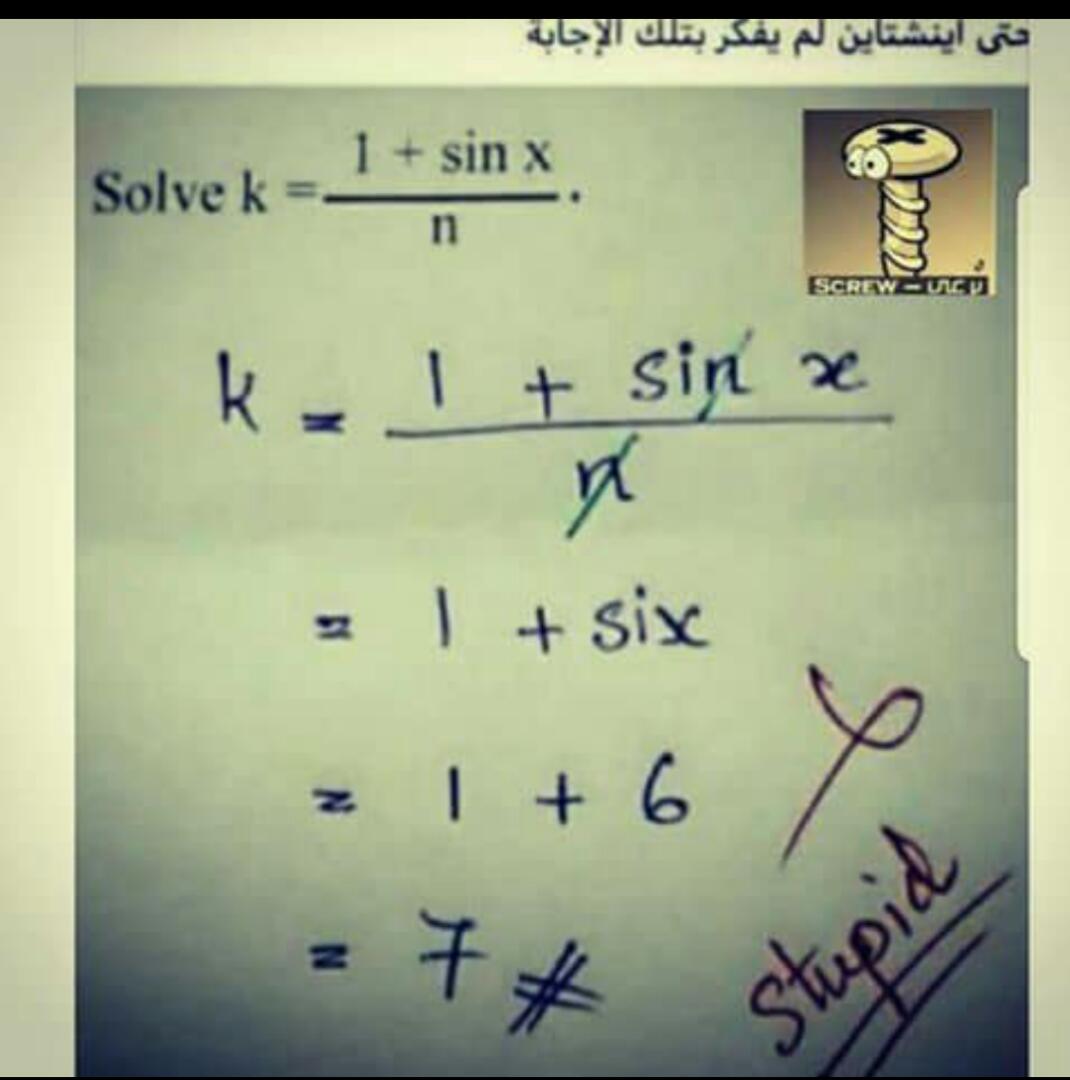 حتى اينشتاين لم يفكر بتلك الإجابة
Solve k = 1 + sin x / n .
SCREW –
k = 1 + sin x / n
= 1 + six
= 1 + 6
= 7 #
Stupid